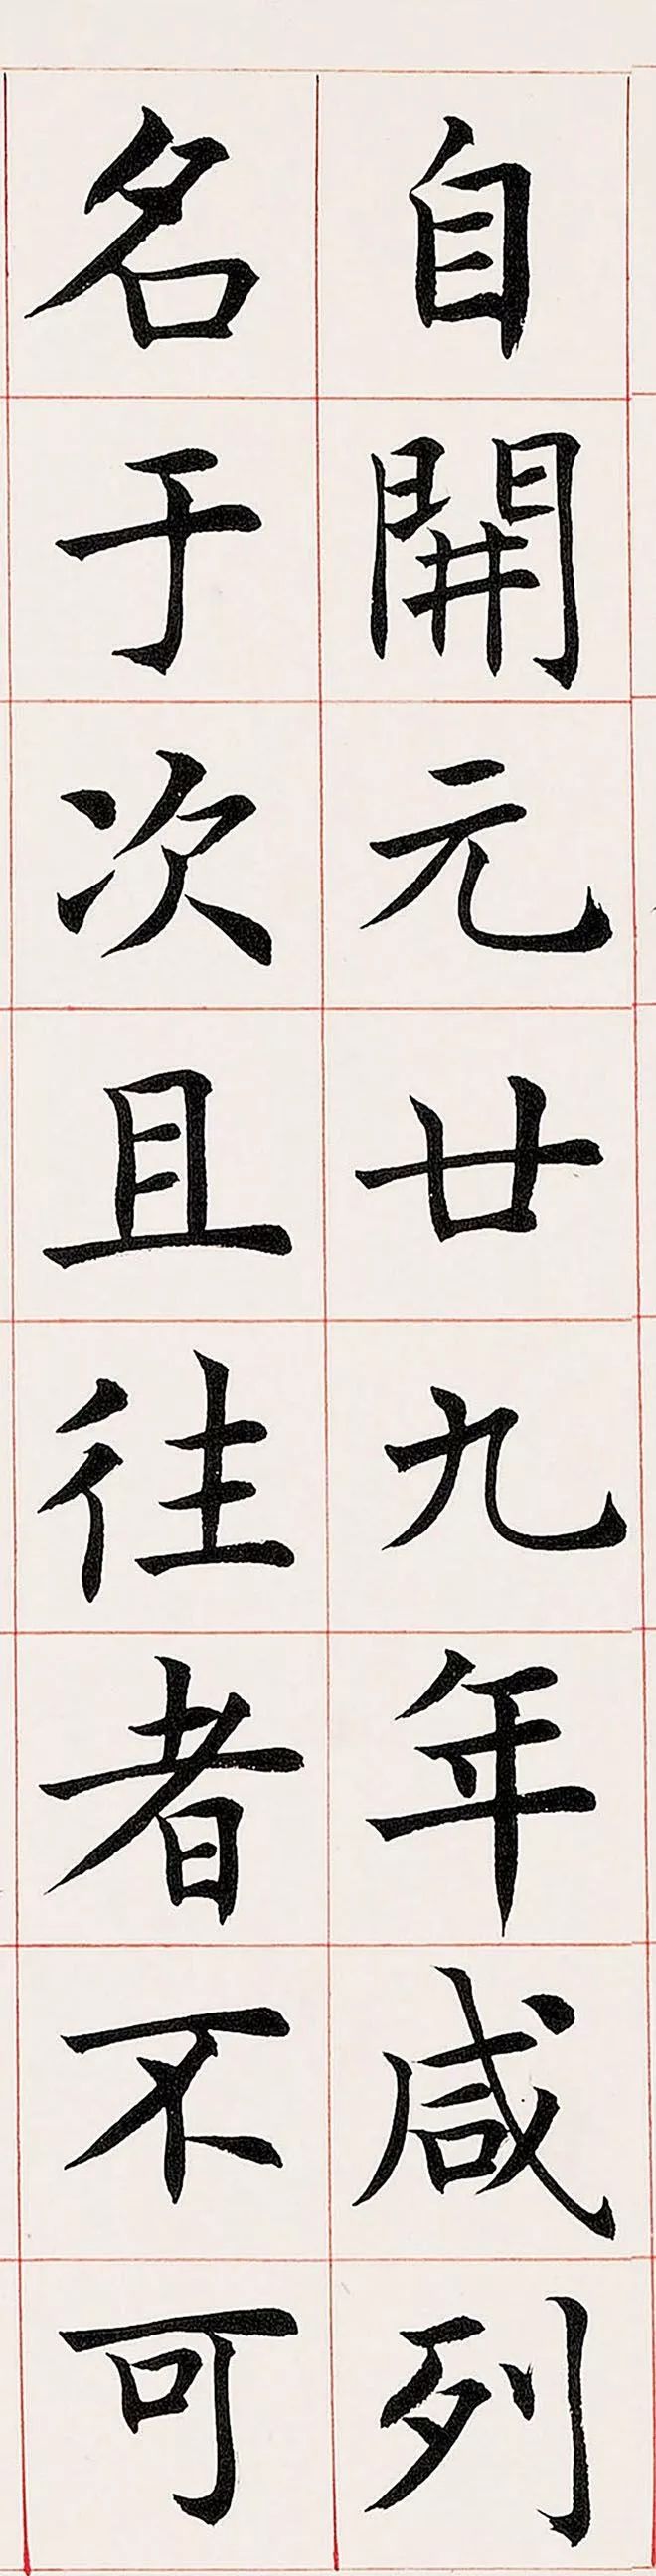 自開元廿九年咸列
名于次且往者不可